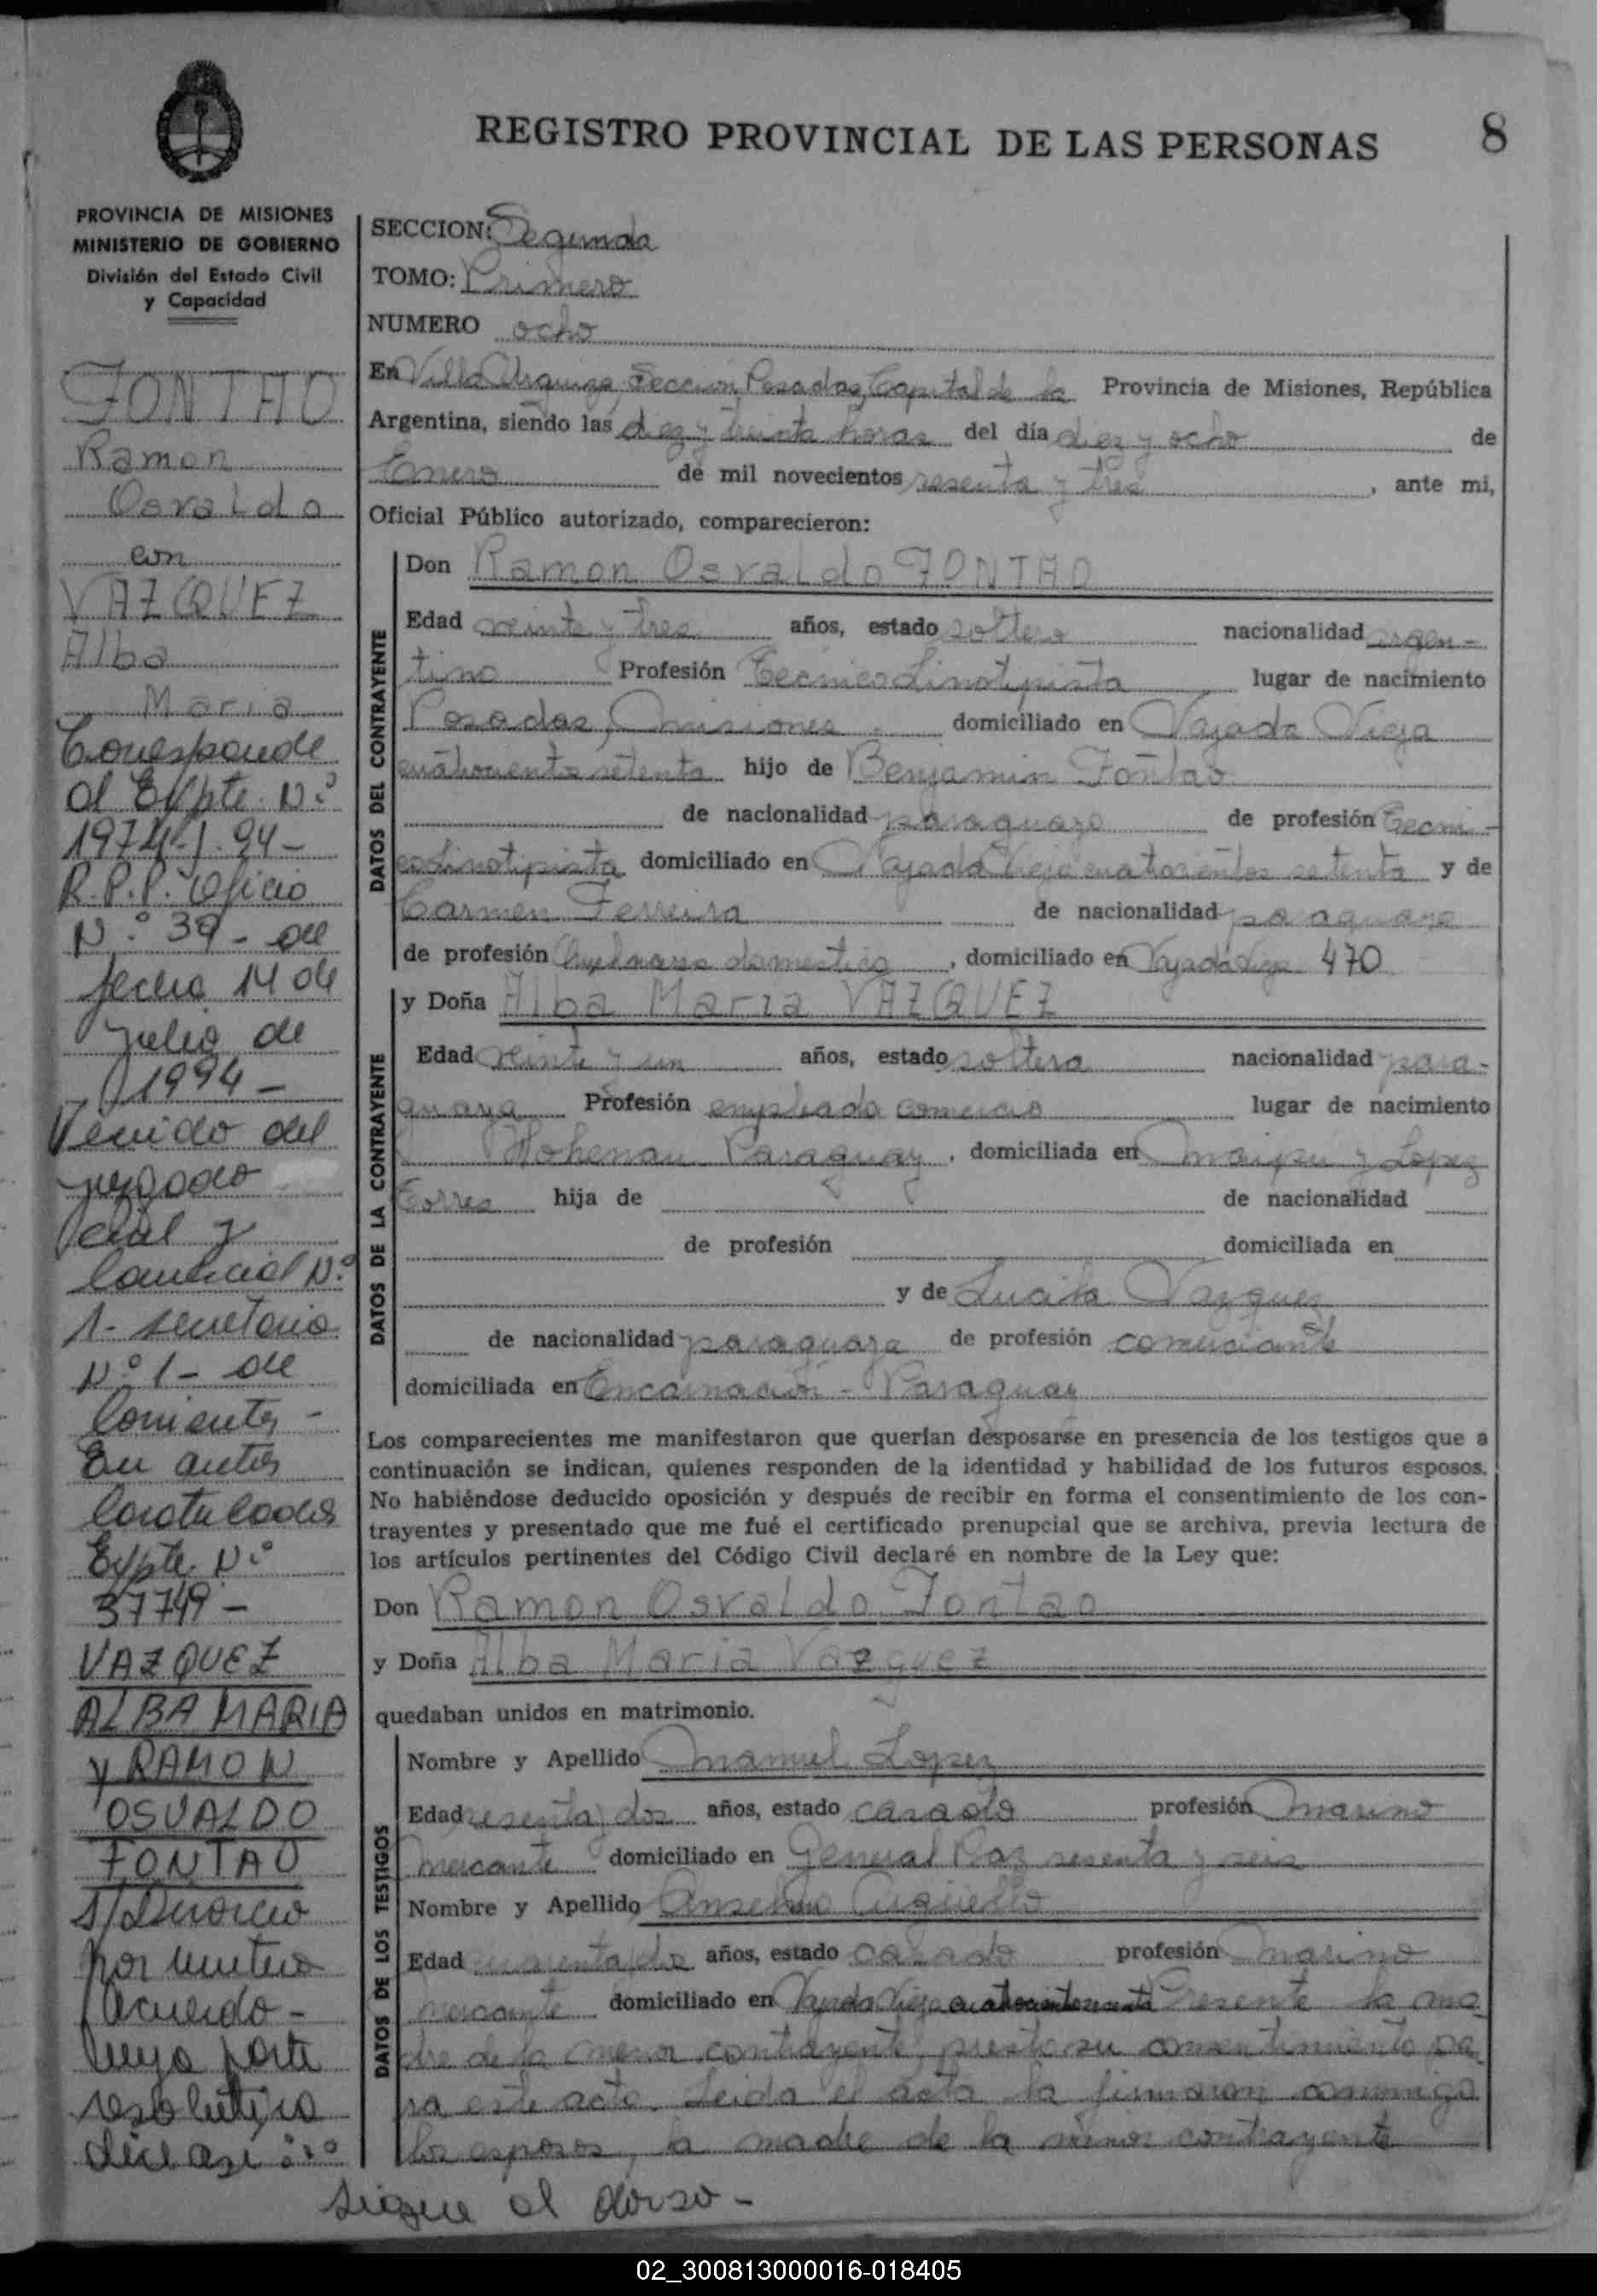 REGISTRO PROVINCIAL DE LAS PERSONAS
8
PROVINCIA DE MISIONES
MINISTERIO DE GOBIERNO
División del Estado Civil
y Capacidad
FONTAO
Ramon
Osvaldo
con
VAZQUEZ
Alba
Maria
Corresponde
al Expte. Nº
1974-J-94-
R.P.P. Oficio
Nº 39- de
fecha 14 de
julio de
1994-
Venido del
juzgado
Civil y
Comercial Nº
1- secretaria
Nº 1- de
Corrientes -
En autos
Caratulados
Expte. Nº
37749-
VAZQUEZ
ALBA MARIA
Y RAMON
OSVALDO
FONTAO
S/Divorcio
por mutuo
acuerdo-
cuya parte
resolutiva
dice asi:
SECCION: Segunda
TOMO: Primero
NUMERO ocho
En Villa Urquiza, Sección Posadas, Capital de la Provincia de Misiones, República
Argentina, siendo las diez y treinta horas del día diez y ocho de
Enero de mil novecientos sesenta y tres, ante mi,
Oficial Público autorizado, comparecieron:
DATOS DEL CONTRAYENTE
Don Ramon Osvaldo FONTAO
Edad veinte y tres años, estado soltero nacionalidad argen-
tino Profesión Tecnico Linotipista lugar de nacimiento
Posadas, Misiones, domiciliado en Vajada Vieja
cuatrocientos setenta hijo de Benjamin Fontao
de nacionalidad paraguayo de profesión Tecni-
co Linotipista domiciliado en Vajada Vieja cuatrocientos setenta y de
Carmen Ferreira de nacionalidad paraguaya
de profesión domestico, domiciliado en Vajada Vieja 470
DATOS DE LA CONTRAYENTE
y Doña Alba Maria VAZQUEZ
Edad veinte y un años, estado soltera nacionalidad para-
guaya Profesión empleada comercio lugar de nacimiento
Hohenau Paraguay, domiciliada en Maipu y Lopez
Torres hija de de nacionalidad
de profesión domiciliada en
y de Lucila Vazquez
de nacionalidad paraguaya de profesión comerciante
domiciliada en Encarnación - Paraguay
Los comparecientes me manifestaron que querían desposarse en presencia de los testigos que a
continuación se indican, quienes responden de la identidad y habilidad de los futuros esposos.
No habiéndose deducido oposición y después de recibir en forma el consentimiento de los con-
trayentes y presentado que me fué el certificado prenupcial que se archiva, previa lectura de
los artículos pertinentes del Código Civil declaré en nombre de la Ley que:
Don Ramon Osvaldo Fontao
y Doña Alba Maria Vazquez
quedaban unidos en matrimonio.
DATOS DE LOS TESTIGOS
Nombre y Apellido Manuel Lopez
Edad sesenta y dos años, estado casado profesión marino
mercante domiciliado en General Paz sesenta y seis
Nombre y Apellido Anselmo
Edad cuarenta y dos años, estado casado profesión marino
mercante domiciliado en Vajada Vieja Presente la ma-
dre de la menor contrayente, presta su consentimiento pa-
ra este acto. Leida el acta la firmaron conmigo
los esposos, la madre de la menor contrayente
sigue al dorso-
02_300813000016-018405